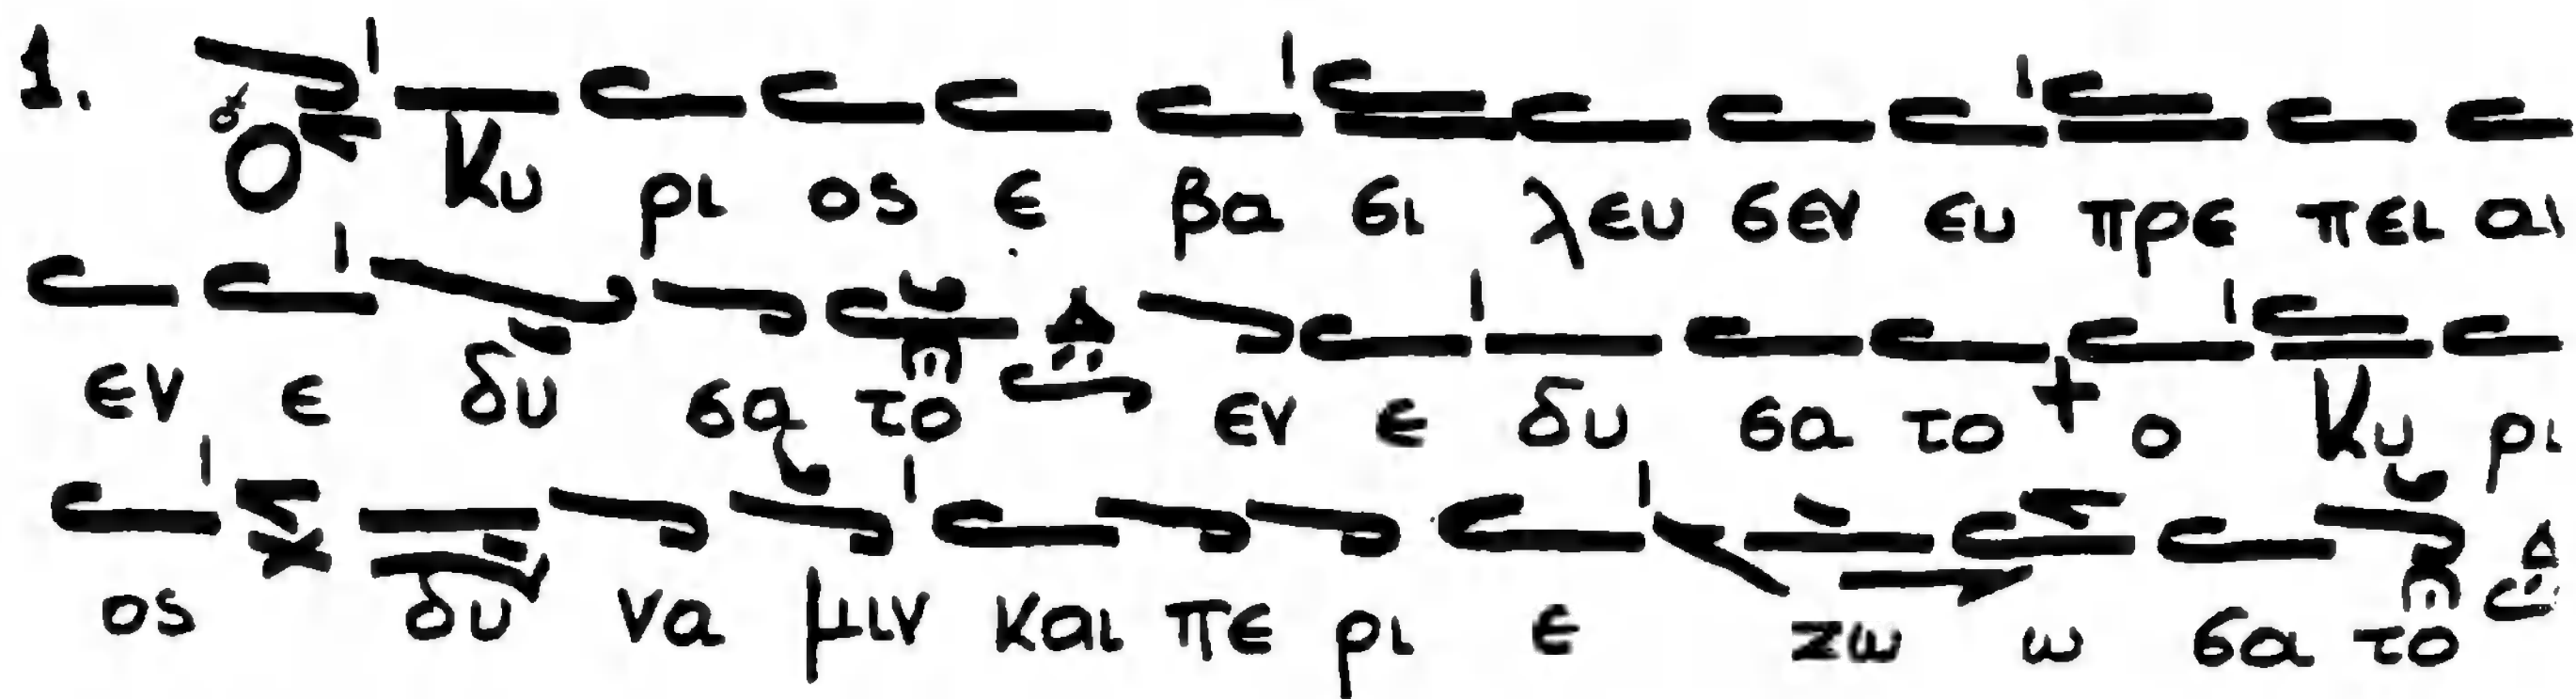 1. Ο Κυ ρι ος ε βα σι λευ σεν ευ πρε πει αι
εν ε δυ σα το Δ εν ε δυ σα το + ο Κυ ρι
ος δυ να μιν και πε ρι ε ζω ω σα το Δ